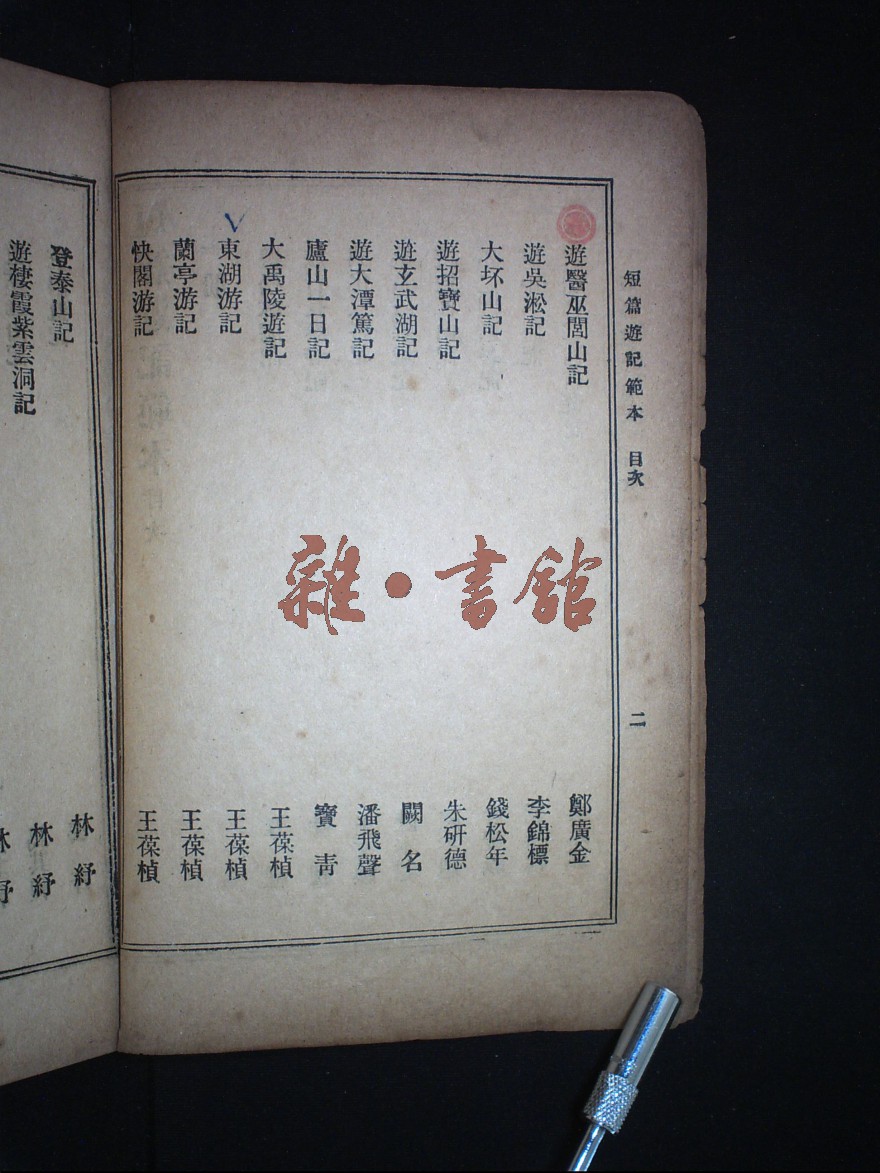 短篇遊記範本 目次 二
遊醫巫閭山記 鄭廣金
遊吳淞記 李錦標
大坏山記 錢松年
遊招寶山記 朱研德
遊玄武湖記 闕名
遊大潭篤記 潘飛聲
廬山一日記 寶青
大禹陵遊記 王葆楨
東湖游記 王葆楨
蘭亭游記 王葆楨
快閣游記 王葆楨
登泰山記 林紓
遊棲霞紫雲洞記 林紓
林紓
雜·書館